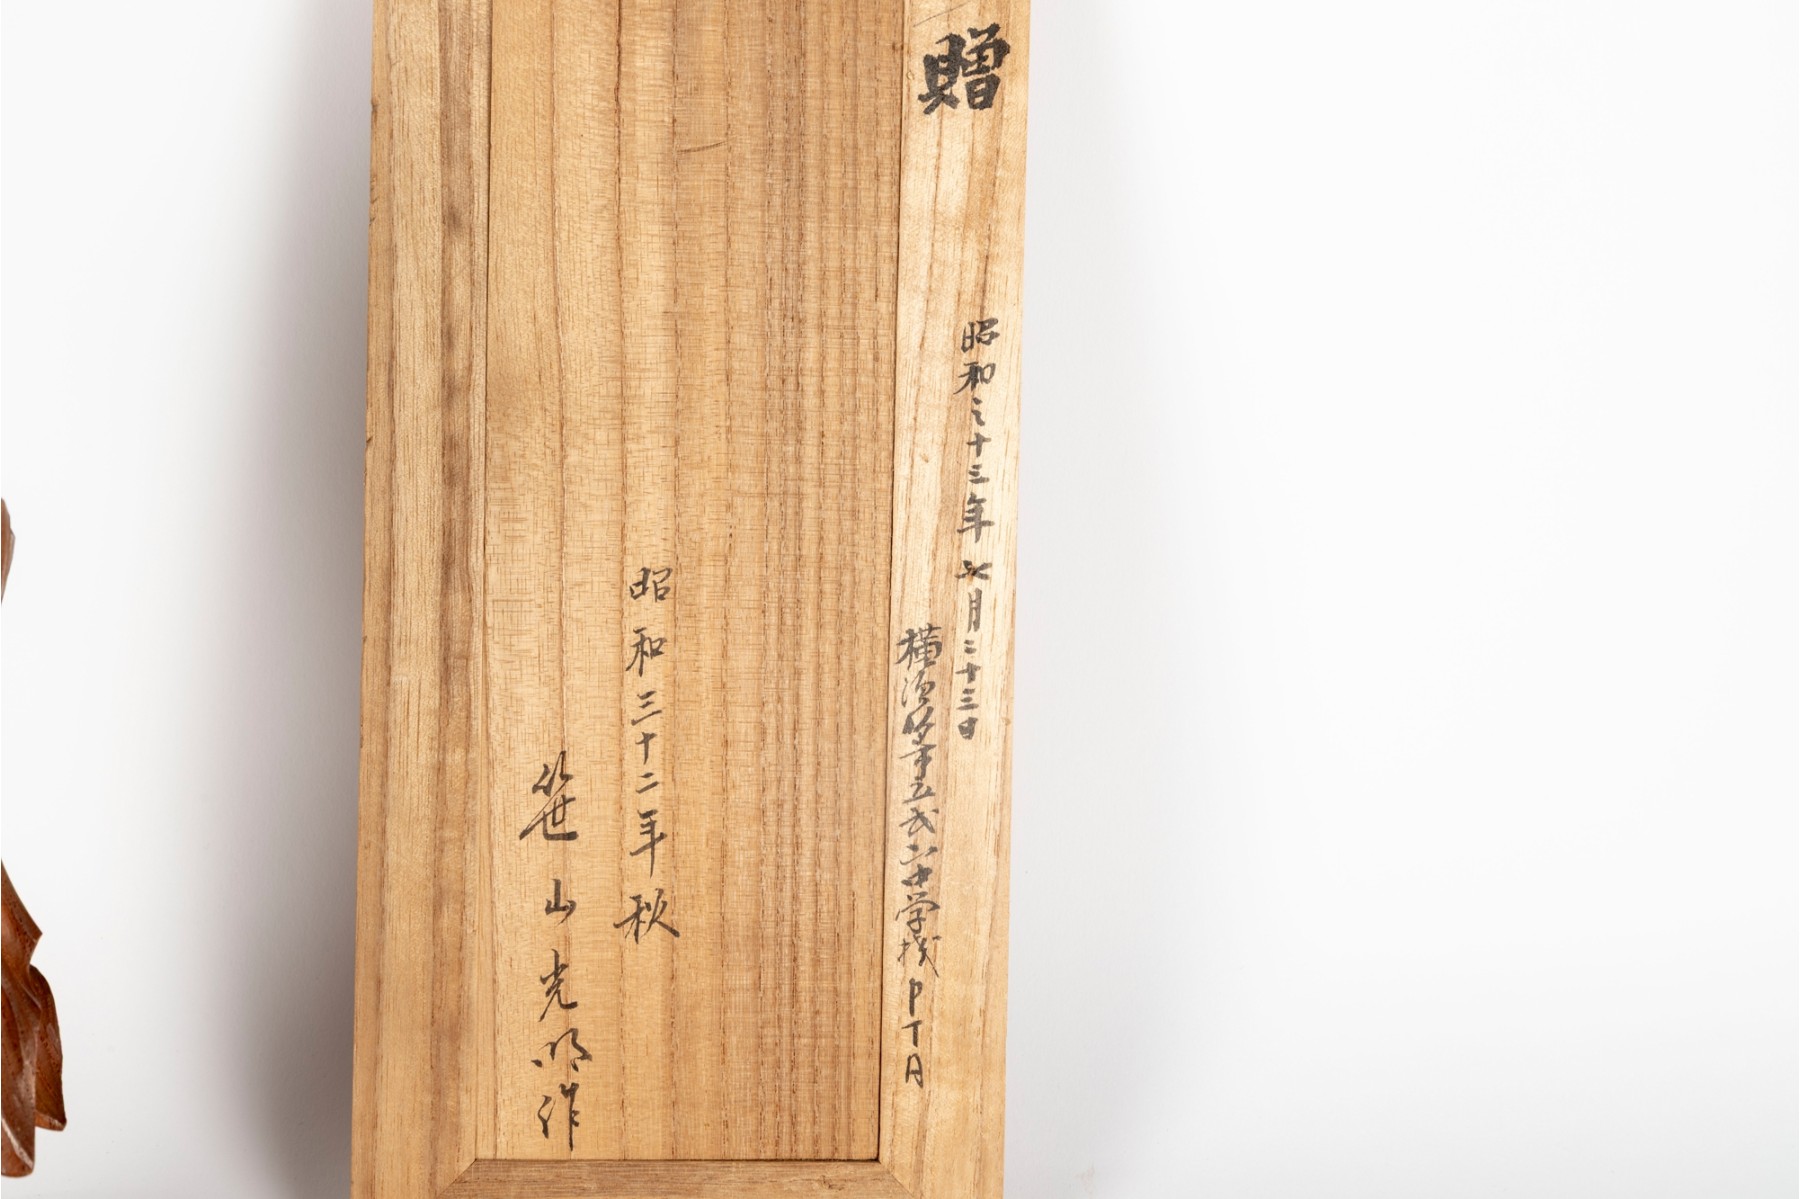 贈
昭和三十三年 七月二十三日
横須賀 中学校 PTA
昭和三十二年秋
笹山光明作